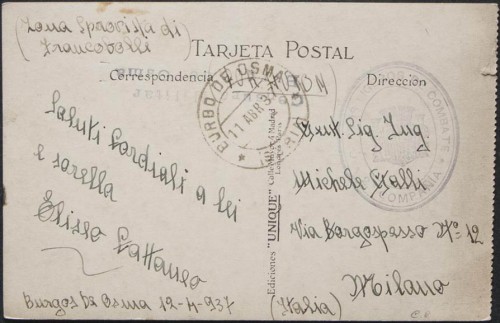 (Zona Sprovista di
Francobolli)
TARJETA POSTAL
Correspondencia
Dirección
BURGO DE OSMA
11 ABR 37
SORIA
COMPAÑIA
Saluti Cordiali a lei
e sorella
Eliseo Cattaneo
Burgos de Osma 12-4-937
Ediciones "UNIQUE"
Madrid
Gent. Sig. Ing.
Michele Galli
Via Borgospasso Nº 12
Milano
(Italia)